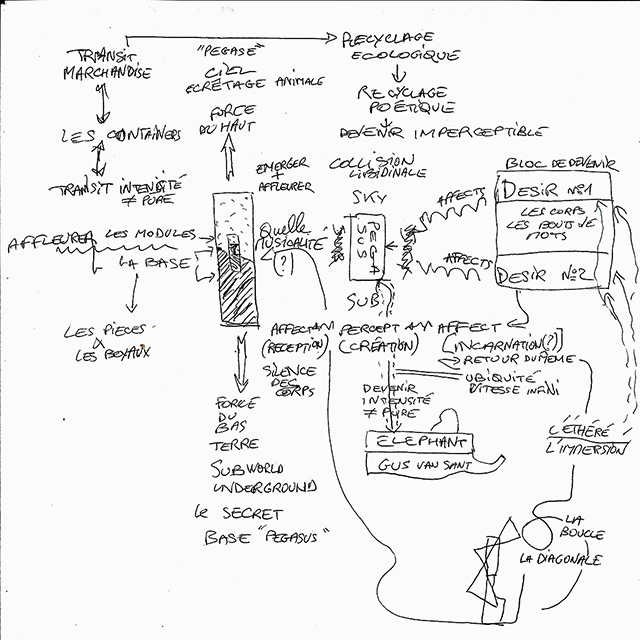 TRANSIT
MARCHANDISE
"PEGASE"
CIEL
ECRÊTAGE ANIMALE
FORCE
DU HAUT
RECYCLAGE
ECOLOGIQUE
RECYCLAGE
POÉTIQUE
DEVENIR IMPERCEPTIBLE
LES CONTAINERS
TRANSIT INTENSITÉ
≠ PURE
EMERGER
+
AFFLEURER
COLLISION
LIBIDINALE
SKY
PEGA
SUS
SUB
AFFECTS
AFFECTS
BLOC DE DEVENIR
DESIR N°1
LES CORPS
LES BOUTS DE
MOTS
DESIR N°2
AFFLEURER LES MODULES
LA BASE
LES PIECES
&
LES BOYAUX
Quelle
MUSICALITÉ
(?)
AFFECT PERCEPT AFFECT
(RECEPTION) (CRÉATION) [INCARNATION(?)]
SILENCE
DES
CORPS
RETOUR DU MÊME
UBIQUITÉ
VITESSE INFINI
DEVENIR
INTENSITÉ
≠ PURE
ELEPHANT
GUS VAN SANT
L'ÉTHÉRÉ
L'IMMERSION
FORCE
DU
BAS
TERRE
SUBWORLD
UNDERGROUND
LE SECRET
BASE "PEGASUS"
LA
BOUCLE
LA DIAGONALE